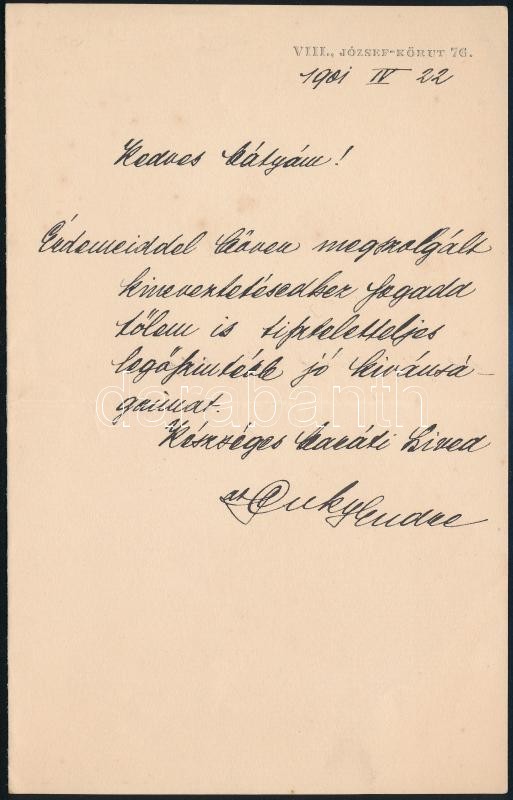 VIII., JÓZSEF-KÖRUT 76.
1901 IV 22
Kedves Bátyám!
Érdemeiddel bőven megszolgált
kineveztetésedhez fogadd
tőlem is tiszteletteljes
legőszintébb jó kivánsá-
gaimat.
darabanth
Készséges baráti hived
Endre